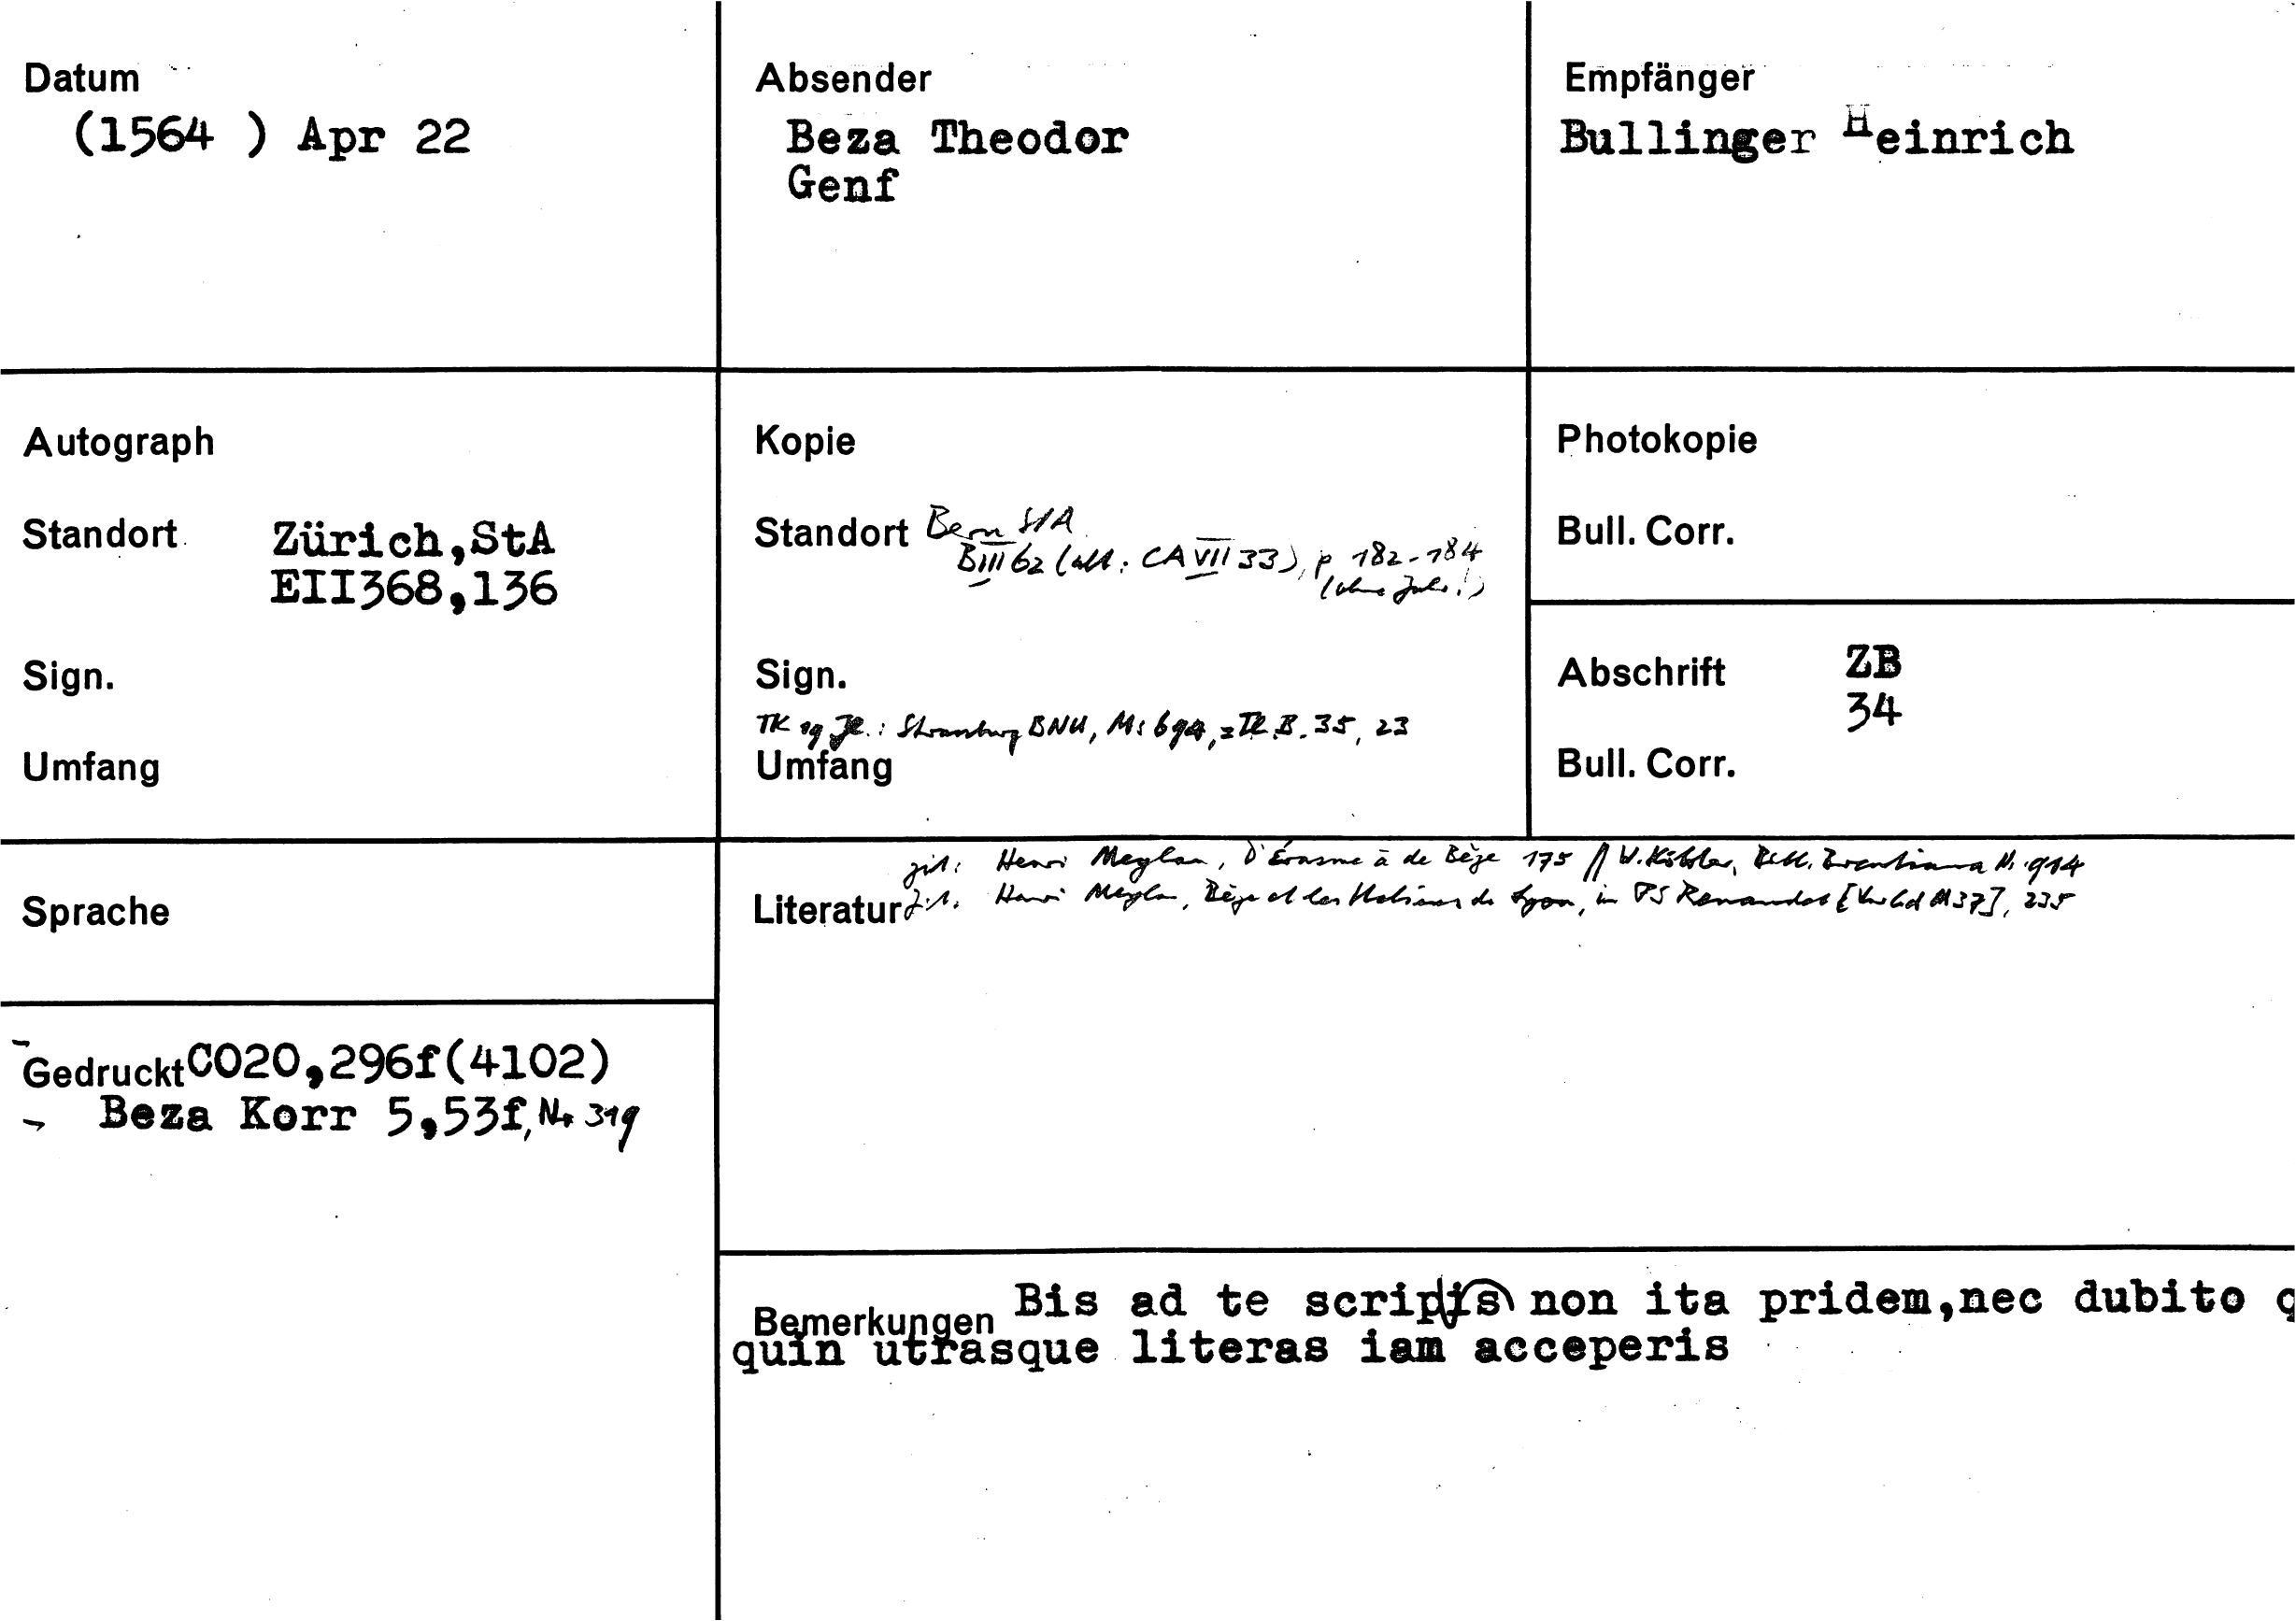 Datum
(1564 ) Apr 22
Absender
Beza Theodor
Genf
Empfänger
Bullinger Heinrich
Autograph
Standort Zürich,StA
EII368,136
Sign.
Umfang
Kopie
Standort Bern StA
BIII 62 (alt: CA VII 33), p 182-184
(ohne Jahr!)
Sign.
TK 19. Jh.: Strassburg BNU, Ms 694, = Th. B. 35, 23
Umfang
Photokopie
Bull. Corr.
Abschrift ZB
34
Bull. Corr.
Sprache
zit: Henri Meylan, D'Érasme à de Bèze 175 // W. Köhler, Bibl. Brentiana Nr. 914
Literatur zit. Henri Meylan, Bèze et les Italiens de Lyon, in 237], 235
Gedruckt CO20,296f(4102)
Beza Korr 5,53f, Nr 319
Bemerkungen Bis ad te scripsi non ita pridem,nec dubito q
quin utrasque literas iam acceperis